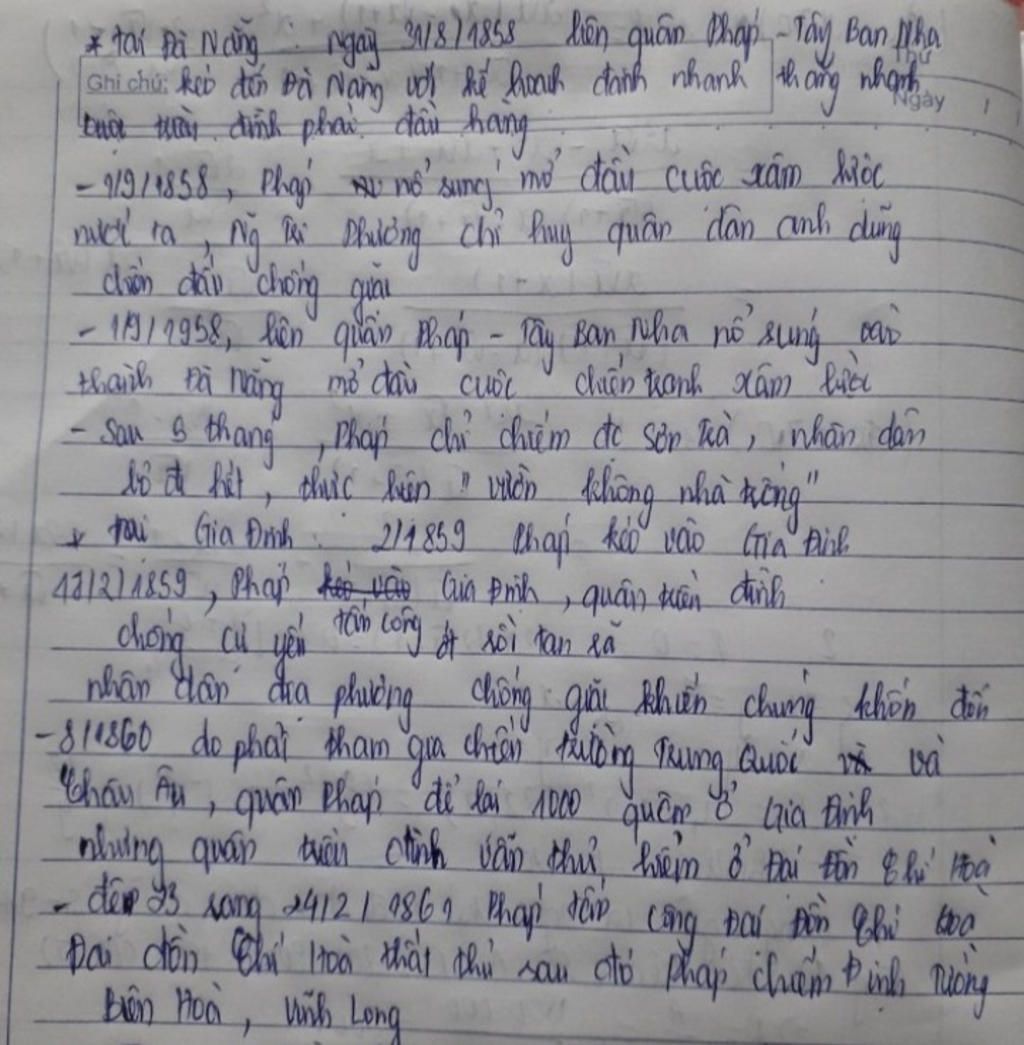 * tại Đà Nẵng : ngày 31/8/1858 liên quân Pháp - Tây Ban Nha
Thứ
Ghi chú: kéo đến Đà Nẵng với kế hoạch đánh nhanh thắng nhanh
Ngày /
buộc triều đình phải đầu hàng
- 1/9/1858, Pháp nổ súng mở đầu cuộc xâm lược
nước ta, Ng Tri Phương chỉ huy quân dân anh dũng
chiến đấu chống giặc
- 1/9/1958, liên quân Pháp - Tây Ban Nha nổ súng vào
thành Đà Nẵng mở đầu cuộc chiến tranh xâm lược
- Sau 5 tháng, Pháp chỉ chiếm đc Sơn Trà, nhân dân
bỏ đi hết, thực hiện " vườn không nhà trống"
* tại Gia Định : 2/1859 Pháp kéo vào Gia Định
17/2/1859, Pháp kéo vào Gia Định, quân triều đình
tấn công
chống cự yếu ớt rồi tan rã
nhân dân địa phương chống giặc khiến chúng khốn đốn
- 8/1860 do phải tham gia chiến trường Trung Quốc và
Châu Âu, quân Pháp để lại 1000 quân ở Gia Định
nhưng quân triều đình vẫn thủ hiểm ở Đại đồn Chí Hoà
- đêm 23 sang 24/2/1861 Pháp tấn công Đại Đồn Chí Hoà
Đại đồn Chí Hoà thất thủ sau đó Pháp chiếm Định Tường
Biên Hoà, Vĩnh Long